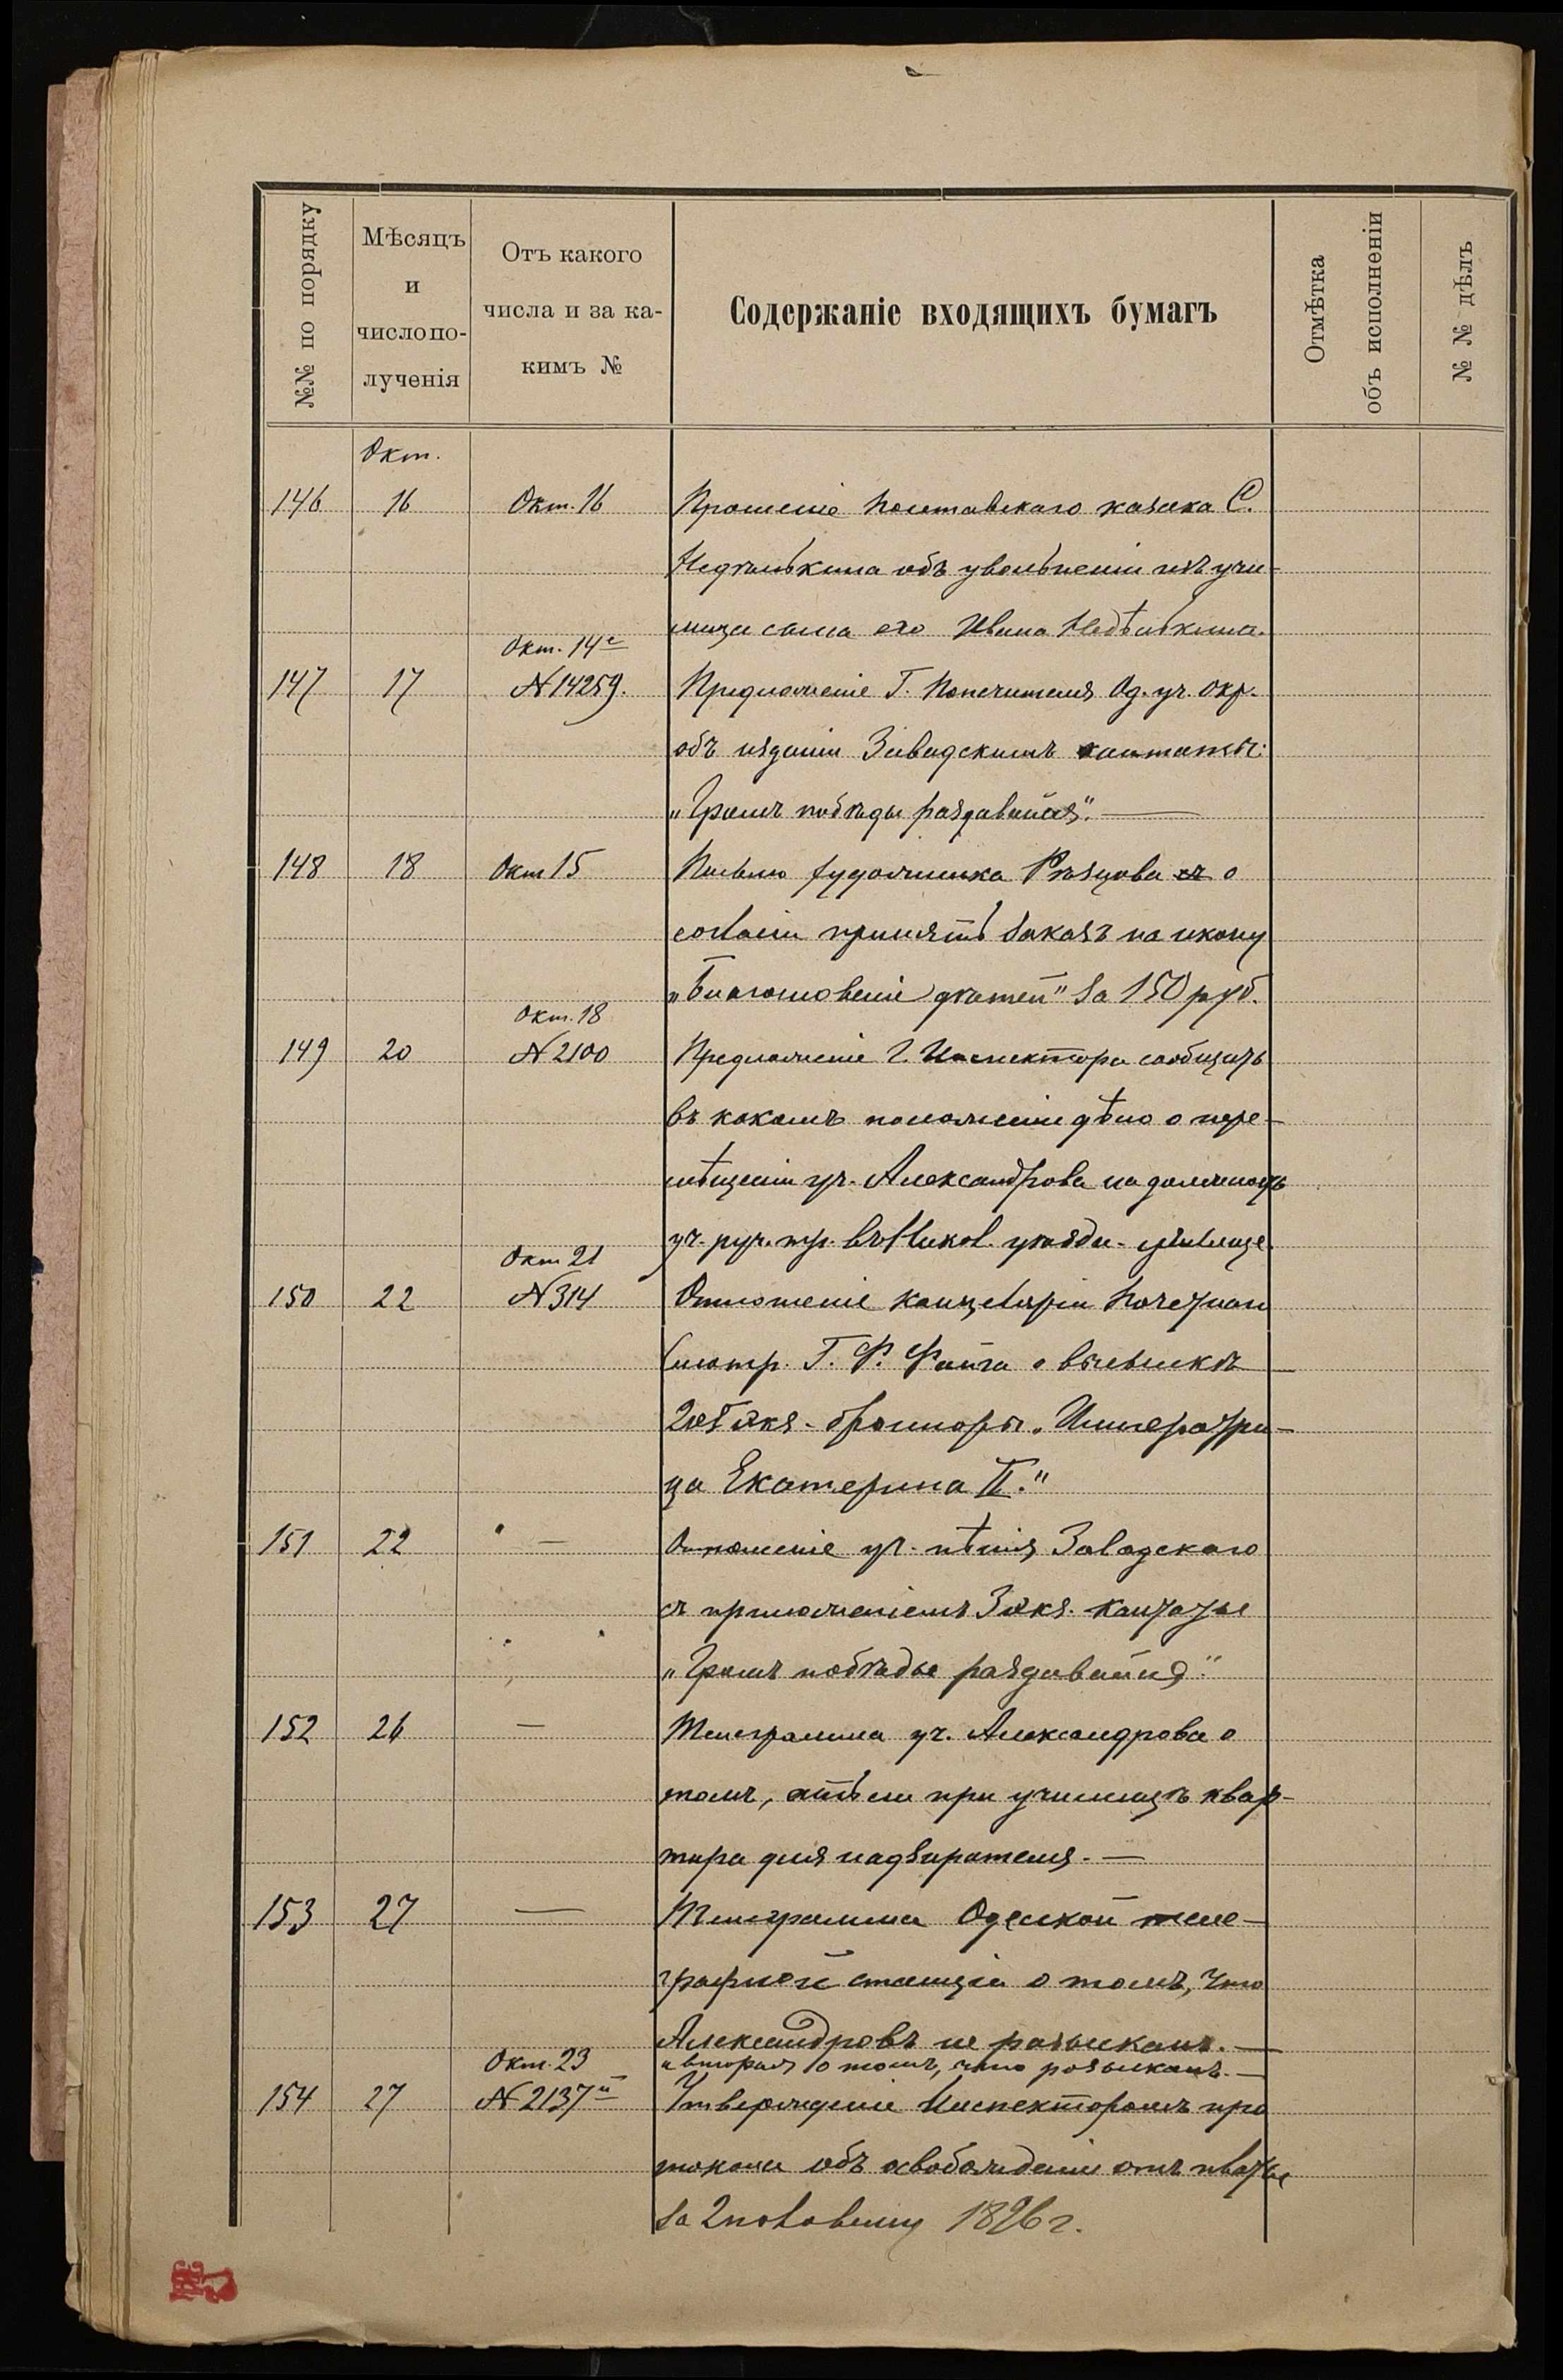 №№ по порядку
Мѣсяцъ
и
число по-
лученія
Отъ какого
числа и за ка-
кимъ №
Содержаніе входящихъ бумагъ
Отмѣтка
объ исполненіи
№ № дѣлъ
Окт.
146 16 Окт. 16 Прошеніе Полтавскаго казака С.
Недѣлькина объ увольненіи изъ учи-
лища сына его Ивана Недѣлькина.
Окт. 14е
147 17 N 14259. Предложеніе Г. Попечителя Од. уч. окр.
объ изданіи Завадскимъ кантаты:
„Громъ побѣды раздавайся".
148 18 Окт 15 Письмо художника Рѣзцова о
согласіи принять заказъ на икону
„Благословеніе дѣтей" за 150 руб.
Окт. 18
149 20 N 2100 Предложеніе Г. Инспектора сообщить
въ какомъ положеніи дѣло о пере-
мѣщеніи уч. Александрова на должность
уч. руч. тр. въ Никол. уѣздн. училище
Окт 21
150 22 N 314 Отношеніе канцеляріи Почетнаго
Смотр. Г. Ф. Фальца о высылкѣ
экз. брошюры „Императри-
ца Екатерина II."
151 22 " — Отношеніе уч. пѣнія Завадскаго
съ приложеніемъ 3 экз. кантаты
„Громъ побѣды раздавайся"
152 26 — Телеграмма уч. Александрова о
томъ, есть ли при училищѣ квар-
тира для надзирателя. —
153 27 — Телеграмма Одесской теле-
графной станціи о томъ, что
Александровъ не разысканъ. —
и вторая о томъ, что розысканъ. —
Окт. 23
154 27 N 2137й Утвержденіе Инспекторомъ про
токола объ освобожденіи отъ платы
за 2 половину 1896 г.